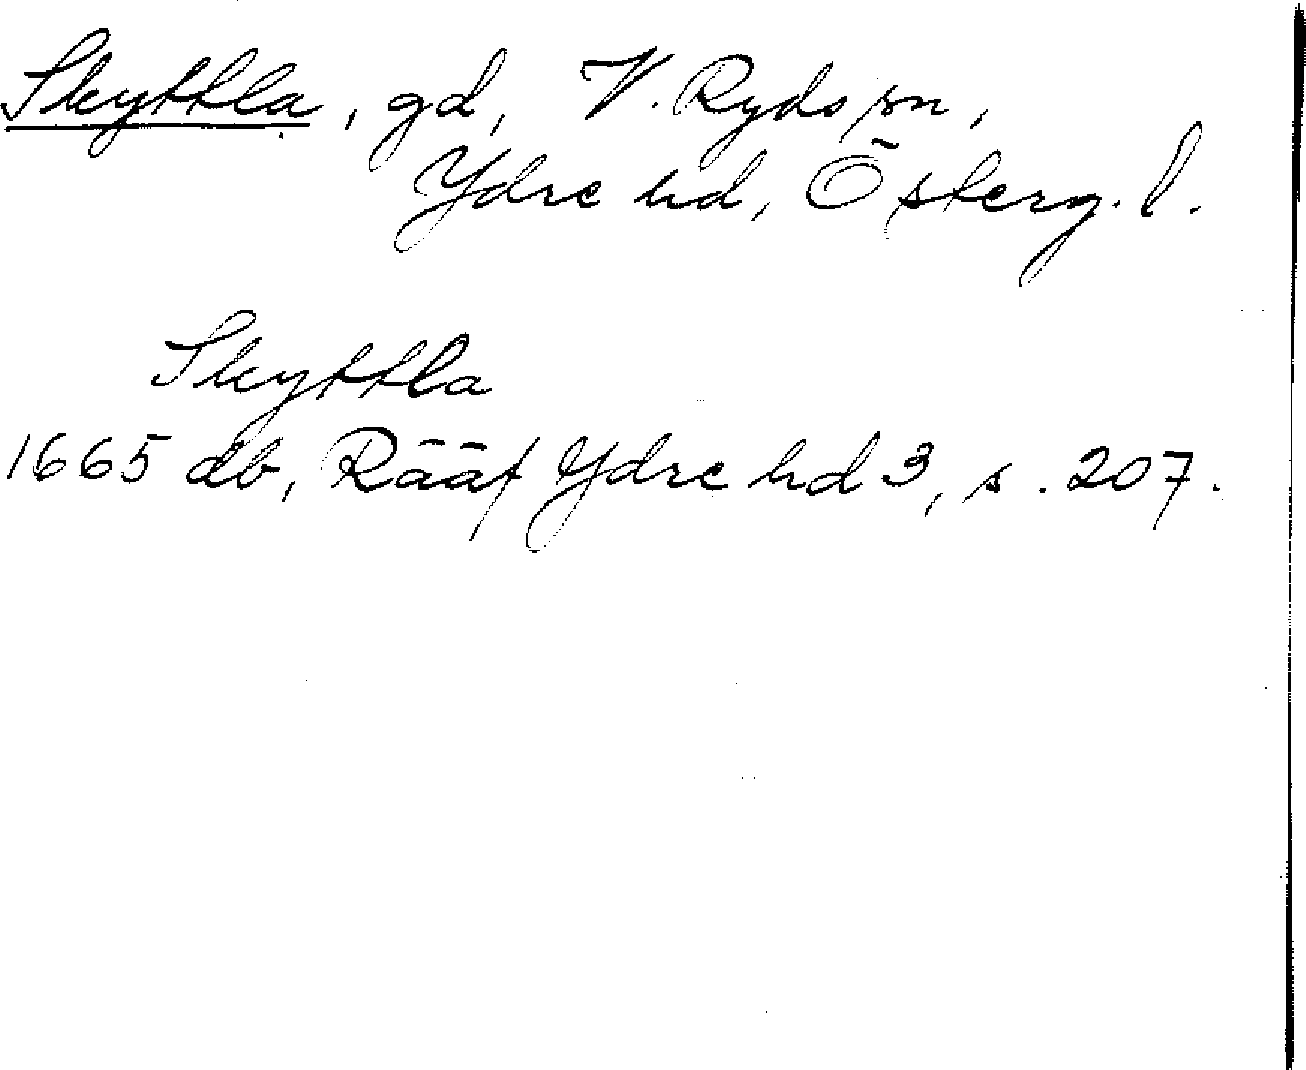 Skyttla, gd, V. Ryds sn,
Ydre hd, Österg. l.
Skyttla
1665 db, Rääf Ydre hd 3, s. 207.